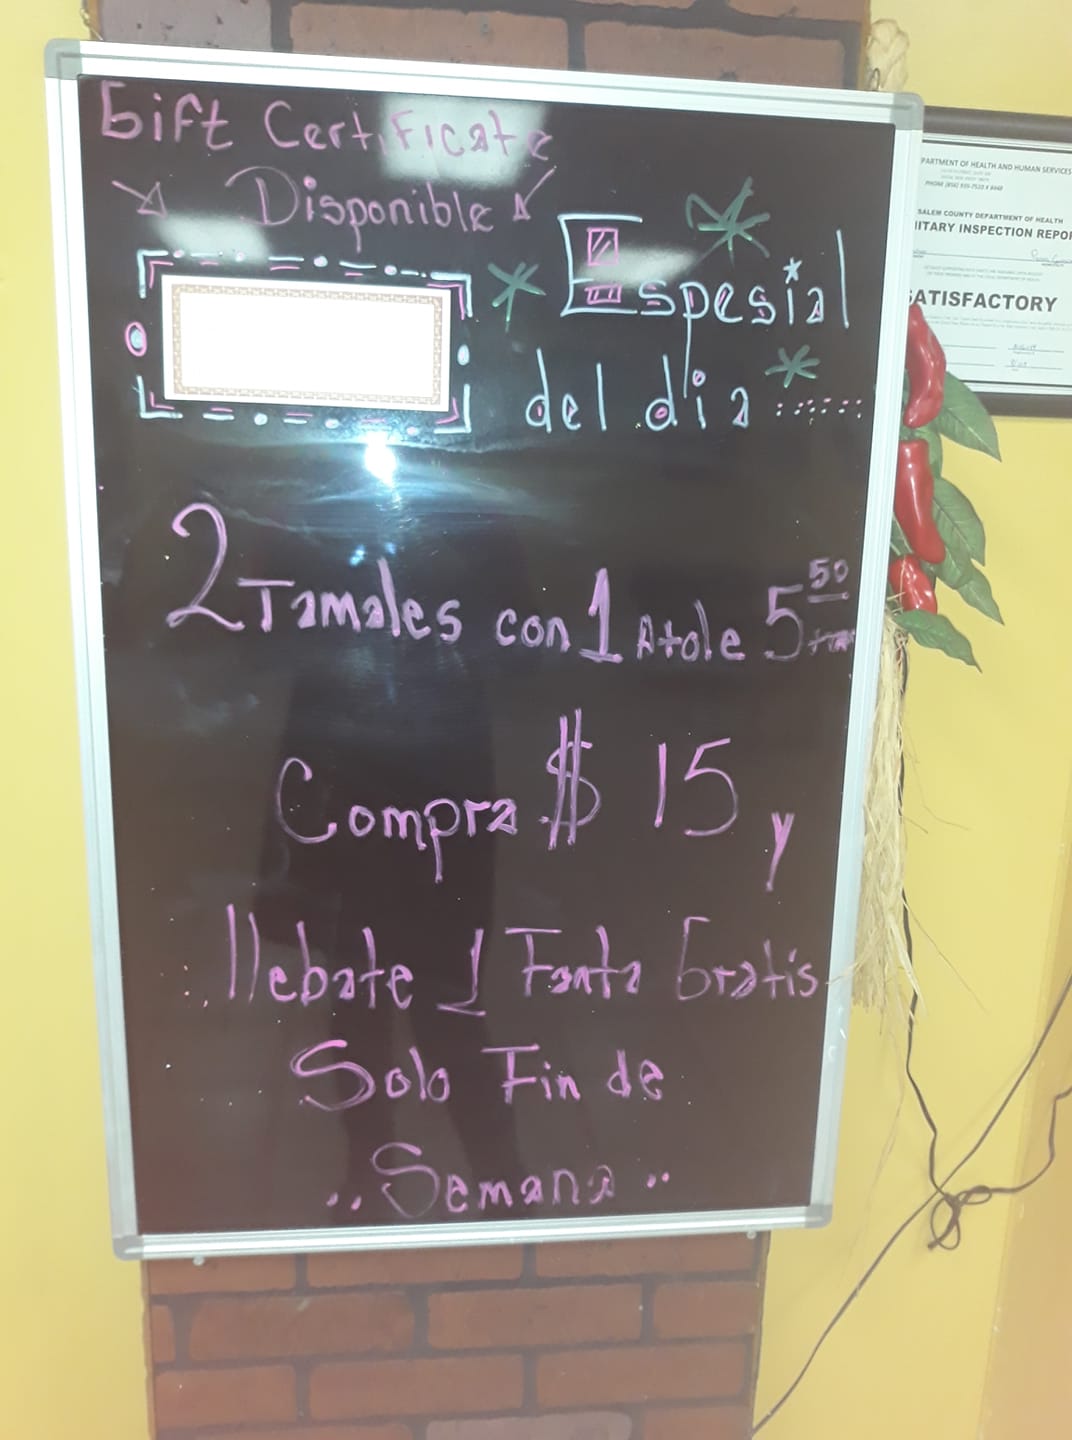 Gift Certificate
Disponible
Espesial
del dia
2 Tamales con 1 Atole 5 50
+tax
Compra $ 15 y
llebate 1 Fanta Gratis
Solo Fin de
Semana
PARTMENT OF HEALTH AND HUMAN SERVICES
SALEM COUNTY DEPARTMENT OF HEALTH
ITARY INSPECTION REPOR
SATISFACTORY